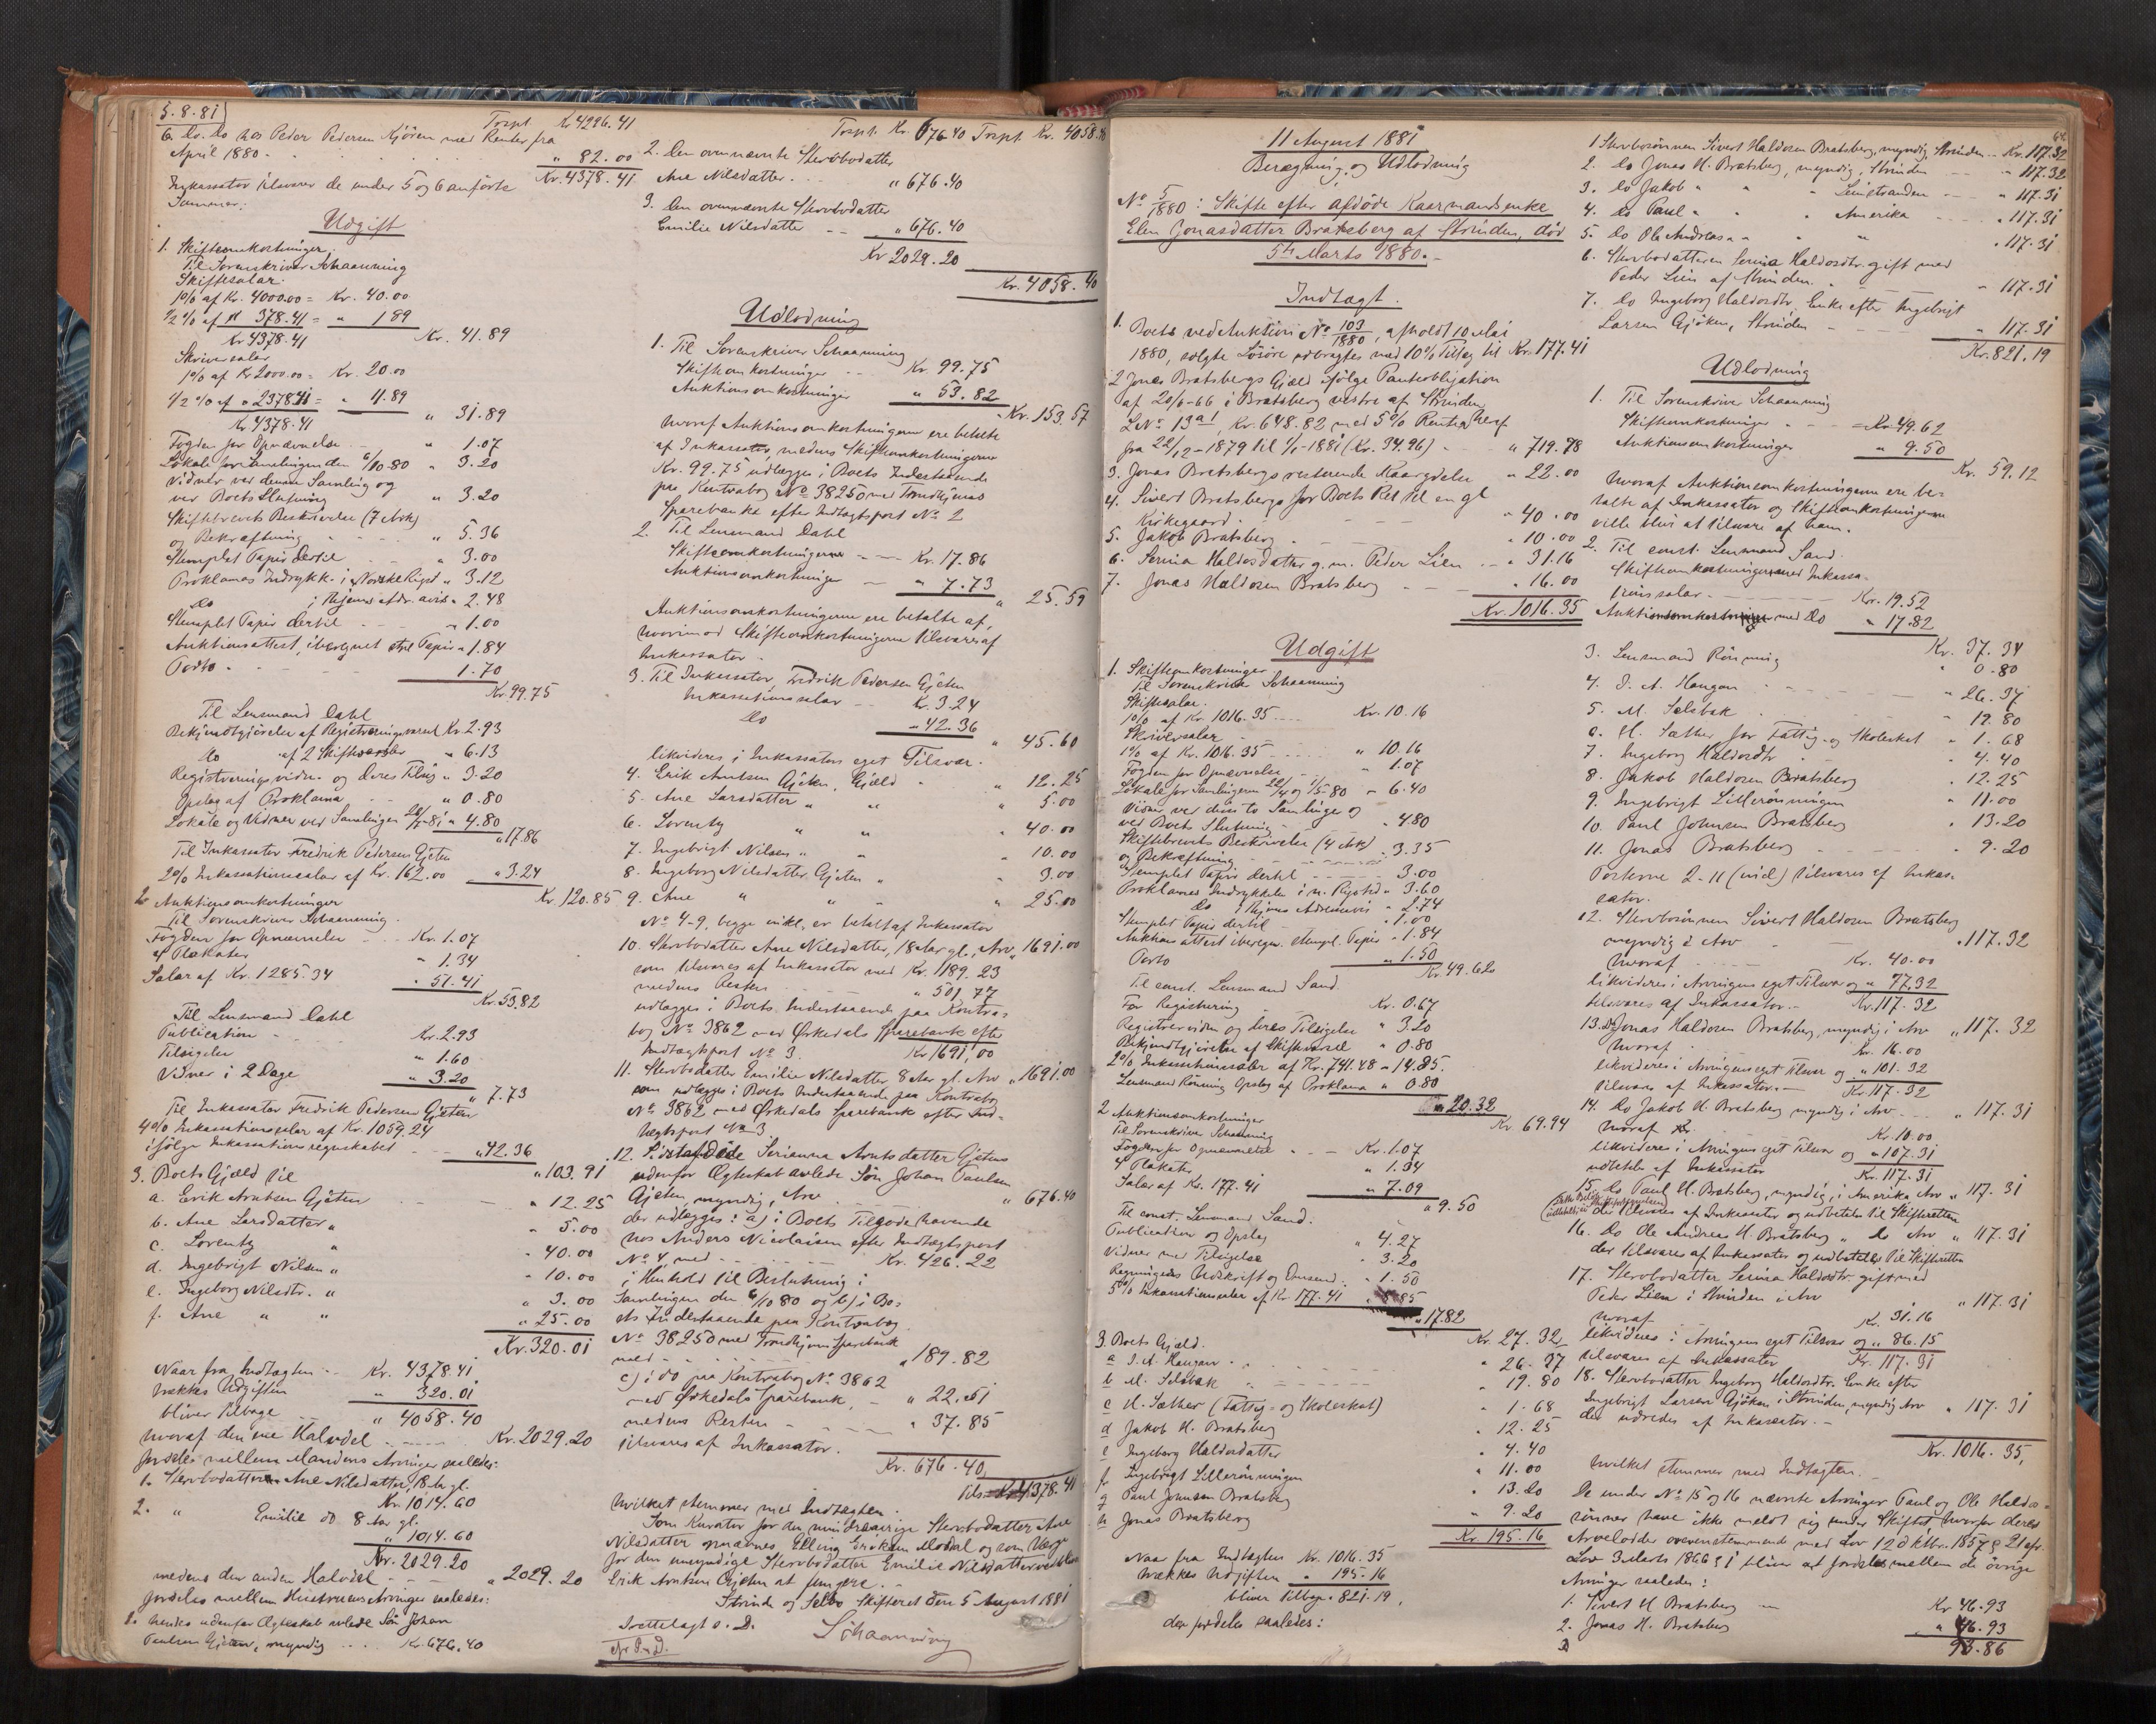 5.8.81
Trspt. Kr 4296.41
6. Do. Do hos Peder Pedersen Kjören med Renter fra
April 1880 . . . " 82.00
Kr. 4378.41
Inkassator tilsvarer de under 5 og 6 anförte
Summer.
Udgift
1. Skifteomkostninger.
Til Sorenskriver Schaanning
Skiftesalar.
1% af Kr. 4000.00 = Kr. 40.00
1/2 % af " 378.41 = " 1 89
Kr 4378.41 Kr. 41.89
Skriversalar
1% af Kr 2000.00 = Kr. 20.00
1/2 % af " 2378.41 = " 11.89
Kr. 4378.41 " 31.89
Fogden for Opnævnelse . . " 1.07
Lokale for Samlingen den 6/10 80 " 3.20
Vidner ved denne Samling og
ved Boets Slutning " 3.20
Skiftebrevets Beskrivelse (7 Ark)
og Bekræftning " 5.36
Stemplet Papir dertil " 3.00
Proklamas Indrykk. i Norske Rigst " 3.12
Do i Thjems Adr. avis " 2.48
Stemplet Papir dertil " 1.00
Auktionsattest, iberegnet stpl. Papir " 1.84
Porto . 1.70
Kr. 99.75
Til Lensmand Dahl
Bekjendtgjörelse af Registreringsvarsel Kr. 2.93
Do af 2 Skiftevarsler " 6.13
Registreringsvidn. og deres Tilsig " 3.20
Opslag af Proklama " 0.80
Lokale og Vidner ved Samlingen " 4.80
" 17.86
Til Inkassator Fredrik Pedersen Gjeten
2% Inkassationssalar af Kr. 162.00 " 3.24
Kr. 120.85
2. Auktionsomkostninger
Til Sorenskriver Schaanning.
Fogden for Opnævnelse Kr. 1.07
4 Plakater " 1.34
Salar af Kr. 1285.34 " 51.41
Kr. 53.82
Til Lensmand Dahl
Publication Kr. 2.93
Tilsigelse " 1.60
Vidner i 2 Dage " 3.20
" 7.73
Til Inkassator Fredrik Pedersen Gjeten
4% Inkassationssalar af Kr. 1059.24
ifölge Inkassationsregnskabet " 42.36
" 103.91
3. Boets Gjæld til
a. Erik Arntsen Gjeten " 12.25
b. Ane Larsdatter " " 5.00
c. Lorents " " 40.00
d. Ingebrigt Nilsen " " 10.00
e. Ingeborg Nilsdtr. " " 3.00
f. Ane " " " 25.00
Kr. 320.01
Naar fra Indtægten Kr. 4378.41
trækkes Udgiften " 320.01
bliver tilbage " 4058.40
hvoraf den ene Halvdel Kr. 2029.20
fordeles mellem Mandens Arvinger saaledes:
1. Stervbodatter Ane Nilsdatter, 18 Aar gl.
Kr. 1014.60
2. " Emilie do 8 Aar gl.
" 1014.60
Kr. 2029.20
medens den anden Halvdel " 2029.20
fordeles mellem Hustruens Arvinger saaledes:
1. hendes udenfor Ægteskab avlede Sön Johan
Paulsen Gjeten, myndig Kr. 676.40
Trspt. Kr. 676.40 Trspt. Kr. 4058.40
2. Den ovennævnte Stervbodatter
Ane Nilsdatter " 676.40
3. Den ovennævnte Stervbodatter
Emilie Nilsdatter " 676.40
Kr 2029.20
Kr. 4058.40
Udlodning
1. Til Sorenskriver Schaanning
Skifteomkostninger Kr. 99.75
Auktionsomkostninger " 53.82
Kr. 153.57
hvoraf Auktionsomkostningerne ere betalte
af Inkassator, medens Skifteomkostningerne
Kr. 99.75 udlægges i Boets Indestaaende
paa Kontrabog No 38250 med Trondhjems
Sparebanke efter Indtægtspost No 2
2. Til Lensmand Dahl
Skifteomkostningerne Kr. 17.86
Auktionsomkostninger " 7.73
" 25.59
Auktionsomkostningerne ere betalte af,
hvorimod Skifteomkostningerne tilsvares af
Inkassator.
3. Til Inkassator Fredrik Pedersen Gjeten
Inkassationssalar Kr. 3.24
Do " 42.36
" 45.60
likvideres i Inkassators eget Tilsvar.
4. Erik Arntsen Gjeten, Gjæld " 12.25
5. Ane Larsdatter " " " 5.00
6. Lorents " " " 40.00
7. Ingebrigt Nilsen " " " 10.00
8. Ingeborg Nilsdatter Gjeten " " 3.00
9. Ane " " " " 25.00
No 4-9, begge inkl., er betalt af Inkassator
10. Stervbodatter Ane Nilsdatter, 18 Aar gl., Arv " 1691.00
som tilsvares af Inkassator med Kr. 1189.23
medens Resten " 501.77
udlægges i Boets Indestaaende paa Kontra-
bog No 3862 med Örkedals Sparebank efter
Indtægtspost No 3. Kr 1691,00
11. Stervbodatter Emilie Nilsdatter 8 Aar gl. Arv " 1691.00
som udlægges i Boets Indestaaende paa Kontrabog
No 3862 med Örkedals Sparebank efter Ind-
tægtspost No 3.
12. Sidstafdöde Serianna Arntsdatter Gjetens
udenfor Ægteskab avlede Sön Johan Paulsen
Gjeten, myndig, Arv " 676.40
der udlægges: a) i Boets Tilgodehavende
hos Anders Nicolaisen efter Indtægtspost
No 4 med Kr. 426.22
i Henhold til Beslutning i
Samlingen den 6/10 80 og b) i Bo-
ets Indestaaende paa Kontrabog
No 38250 med Trondhjems Sparebank
med " 189.82
c) i do paa Kontrabog No 3862
med Örkedals Sparebank, " 22.51
medens Resten " 37.85
tilsvares af Inkassator.
Kr. 676.40
Tils. Kr 4378.41
hvilket stemmer med Indtægten.
Som Kurator for den mindreaarige Stervbodatter Ane
Nilsdatter opnævnes Elling Eriksen Modal og som Værge
for den umyndige Stervbodatter Emilie Nilsdatter vedbliver
Erik Arntsen Gjeten at fungere.
Strinde og Selbo Skifteret den 5 August 1881
Fremlagt s. D.
Schaanning
11 August 1881
Beregning og Udlodning
No 5/1880: Skifte efter afdöde Kaarmandsenke
Elen Jonasdatter Bratsberg af Strinden, död
5te Marts 1880.
Indtægt.
1. Boets ved Auktion No 103/1880, afholdt 10 Mai
1880, solgte Lösöre udbragtes med 10% Tillæg til Kr. 177.41
2 Jonas Bratsbergs Gjæld ifölge Panteobligation
af 20/6-66 i Bratsberg vestre af Strinden
LNo 13a1, Kr. 648.82 med 5% Renter heraf
fra 22/12-1879 til 1/1-1881 (Kr. 34.96) " 719.78
3. Jonas Bratsbergs resterende Kaarydelse " 22.00
4. Sivert Bratsbergs for Boets Ret til en gl
Kirkegaard. " 40.00
5. Jakob Bratsberg " 10.00
6. Serina Haldosdatter g. m. Peder Lien " 31.16
7. Jonas Haldosen Bratsberg " 16.00
Kr. 1016.35
Udgift
1. Skifteomkostninger
Til Sorenskriver Schaanning
Skiftesalar.
1% af Kr. 1016.35 Kr. 10.16
Skriversalar
1% af Kr. 1016.35 " 10.16
Fogden for Opnævnelse " 1.07
Lokale for Samlingerne 22/4 og 1/5-80 " 6.40
Vidner ved disse to Samlinger og
ved Boets Slutning " 4.80
Skiftebrevets Beskrivelse (4 Ark)
og Bekræftning " 3.35
Stemplet Papir dertil 3.00
Proklamas Indrykkelse i n. Rigstid " 3.60
Do i Thjems Adresseavis " 2.74
Stemplet Papir dertil " 1.00
Auktionsattest iberegn. stempl. Papir " 1.84
Porto " 1.50
Kr 49.62
Til const. Lensmand Sand.
For Registrering Kr. 0.67
Registrervidner og deres Tilsigelse " 3.20
Bekjendtgjörelse af Skiftevarsel " 0.80
2% Inkassationssalar af Kr. 741.48 " 14.85
Lensmand Rönning Opslag af Proklama " 0.80
" 20.32
Kr. 69.94
2 Auktionsomkostninger
Til Sorenskriver Schaanning
Fogden for Opnævnelse Kr. 1.07
4 Plakater " 1.34
Salar af Kr. 177.41 " 7.09
" 9.50
Til const. Lensmand Sand.
Publication og Opslag " 4.27
Vidner med Tilsigelse " 3.20
Regningens Udskrift og Omsend. " 1.50
5% Inkassationssalar af Kr 177.41 " 8.85
" 17.82
Kr. 27.32
3. Boets Gjæld.
a J. A. Haugan " 26.37
b M. Selsbak " 19.80
c H. Sæther (Fattig- og Skoleskat) " 1.68
d Jakob H. Bratsberg " 12.25
e Ingeborg Haldosdatter " 4.40
f Ingebrigt Lillerönningen " 11.00
g Paul Johnsen Bratsberg " 13.20
h Jonas Bratsberg " 9.20
Kr. 195.16
Naar fra Indtægten Kr. 1016.35
trækkes Udgiften " 195.16
bliver tilbage " 821.19.
der fordeles saaledes:
64
1 Stervbosönnen Sivert Haldosen Bratsberg, myndig, Strinden Kr. 117.32
2. do Jonas H. Bratsberg, myndig, Strinden " 117.32
3. do Jakob " " " Leinstranden " 117.31
4. do Paul " " " Amerika " 117.31
5. do Ole Andreas " " " " 117.31
6. Stervbodatteren Serina Haldosdtr. gift med
Peder Lien af Strinden. " 117.31
7. do Ingeborg Haldosdtr, Enke efter Ingebrigt
Larsen Gjöken, Strinden " 117.31
Kr. 821.19
Udlodning
1. Til Sorenskriver Schaanning
Skifteomkostninger Kr. 49.62
Auktionsomkostninger " 9.50
Kr. 59.12
hvoraf Auktionsomkostningerne ere be-
talte af Inkassator og Skifteomkostningerne
ville blive at tilsvare af ham.
2. Til const. Lensmand Sand.
Skifteomkostningerne med Inkassa-
tionssalar Kr. 19.52
Auktionsomkostninger med Do " 17.82
Kr. 37.34
3. Lensmand Rönning " 0.80
4. J. A. Haugan " 26.37
5. M. Selsbak " 19.80
6. H. Sæther for Fattig- og Skoleskat " 1.68
7. Ingeborg Haldosdtr " 4.40
8. Jakob Haldosen Bratsberg " 12.25
9. Ingebrigt Lillerönningen " 11.00
10. Paul Johnsen Bratsberg " 13.20
11. Jonas Bratsberg " 9.20
Posterne 2-11 (incl) tilsvares af Inkas-
sator.
12. Stervbosönnen Sivert Haldosen Bratsberg
myndig i Arv " 117.32
hvoraf Kr. 40.00
likvideres i Arvingens eget Tilsvar og " 77.32
tilsvares af Inkassator. Kr. 117.32
13. Do Jonas Haldosen Bratsberg, myndig i Arv " 117.32
hvoraf Kr. 16.00
likvideres i Arvingens eget Tilsvar og " 101.32
tilsvares af Inkassator. Kr 117.32
14. Do Jakob H. Bratsberg myndig i Arv " 117.31
hvoraf Kr. 10.00
likvideres i Arvingens eget Tilsvar og " 107.31
udbetales af Inkassator Kr. 117.31
15. Do Paul H. Bratsberg, myndig, i Amerika Arv " 117.31
der tilsvares af Inkassator og udbetales til Skifteretten
16. Do Ole Andreas H. Bratsberg " do Arv " 117.31
der tilsvares af Inkassator og udbetales til Skifteretten
17. Stervbodatter Serina Haldosdtr. gift med
Peder Lien i Strinden i Arv " 117.31
hvoraf Kr. 31.16
likvideres i Arvingens eget Tilsvar og " 86.15
tilsvares af Inkassator Kr. 117.31
18. Stervbodatter Ingeborg Haldosdtr. Enke efter
Ingebrigt Larsen Gjöken i Strinden, myndig Arv " 117.31
der udredes af Inkassator.
Kr. 1016.35,
hvilket stemmer med Indtægten.
De under No 15 og 16 nævnte Arvinger Paul og Ole Haldo-
sönner have ikke meldt sig under Skiftet hvorfor deres
Arvelodder overensstemmende med Lov 12 Oktbr. 1857 § 2 jfr.
Lov 3 Marts 1866 § 1 bliver at fordele mellem de övrige
Arvinger saaledes:
1. Sivert H Bratsberg Kr 46.93
2. Jonas H. Bratsberg " 46.93
93.86